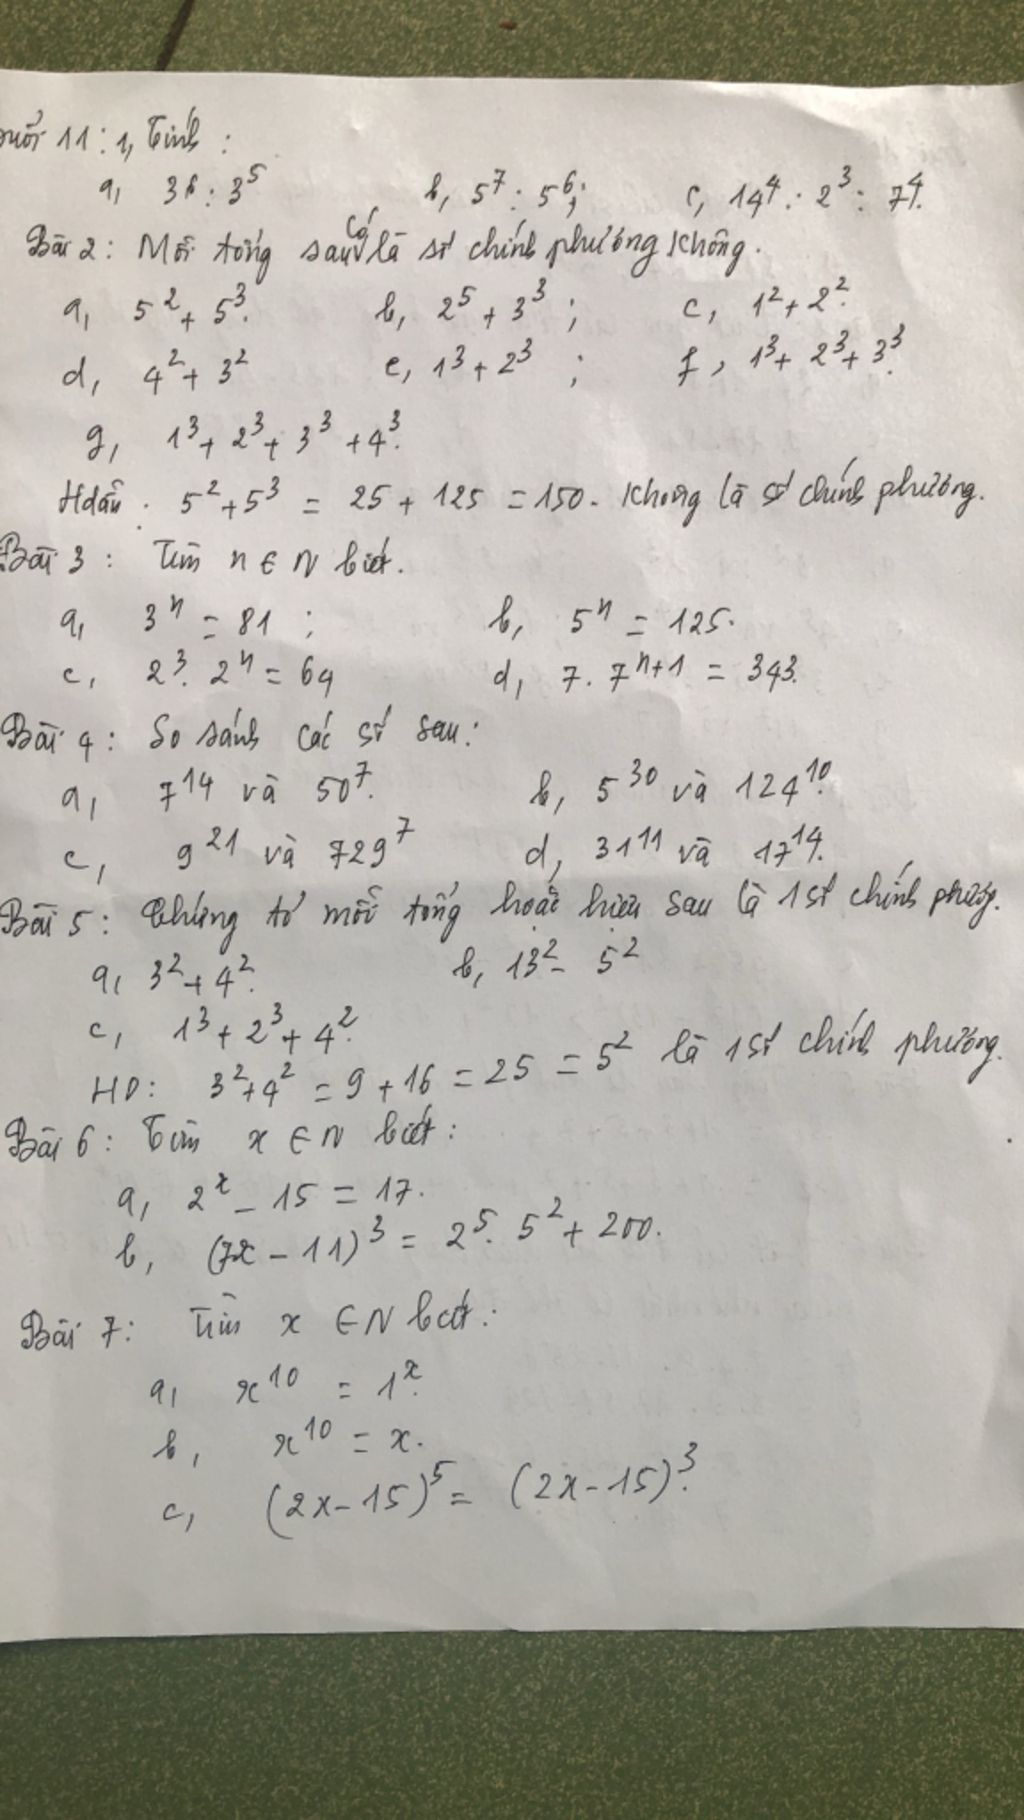 11: 1, Tính:
a, 3⁶ : 3⁵ b, 5⁷ : 5⁶; c, 14⁴ : 2³ : 7⁴.
Bài 2: Mỗi tổng sau có là số chính phương không.
a, 5² + 5³. b, 2⁵ + 3³ ; c, 1² + 2².
d, 4² + 3² e, 1³ + 2³ ; f, 1³ + 2³ + 3³.
g, 1³ + 2³ + 3³ + 4³.
Hdẫn: 5² + 5³ = 25 + 125 = 150. Không là số chính phương.
Bài 3: Tìm n ∈ N biết.
a, 3ⁿ = 81 ; b, 5ⁿ = 125.
c, 2³. 2ⁿ = 64 d, 7. 7ⁿ⁺¹ = 343.
Bài 4: So sánh các số sau:
a, 7¹⁴ và 50⁷. b, 5³⁰ và 124¹⁰.
c, 9²¹ và 729⁷ d, 31¹¹ và 17¹⁴.
Bài 5: Chứng tỏ mỗi tổng hoặc hiệu sau là 1 số chính phương.
a, 3² + 4². b, 13² - 5²
c, 1³ + 2³ + 4².
HD: 3² + 4² = 9 + 16 = 25 = 5² là 1 số chính phương.
Bài 6: Tìm x ∈ N biết:
a, 2ˣ - 15 = 17.
b, (7x - 11)³ = 2⁵. 5² + 200.
Bài 7: Tìm x ∈ N biết:
a, x¹⁰ = 1ˣ.
b, x¹⁰ = x.
c, (2x - 15)⁵ = (2x - 15)³.